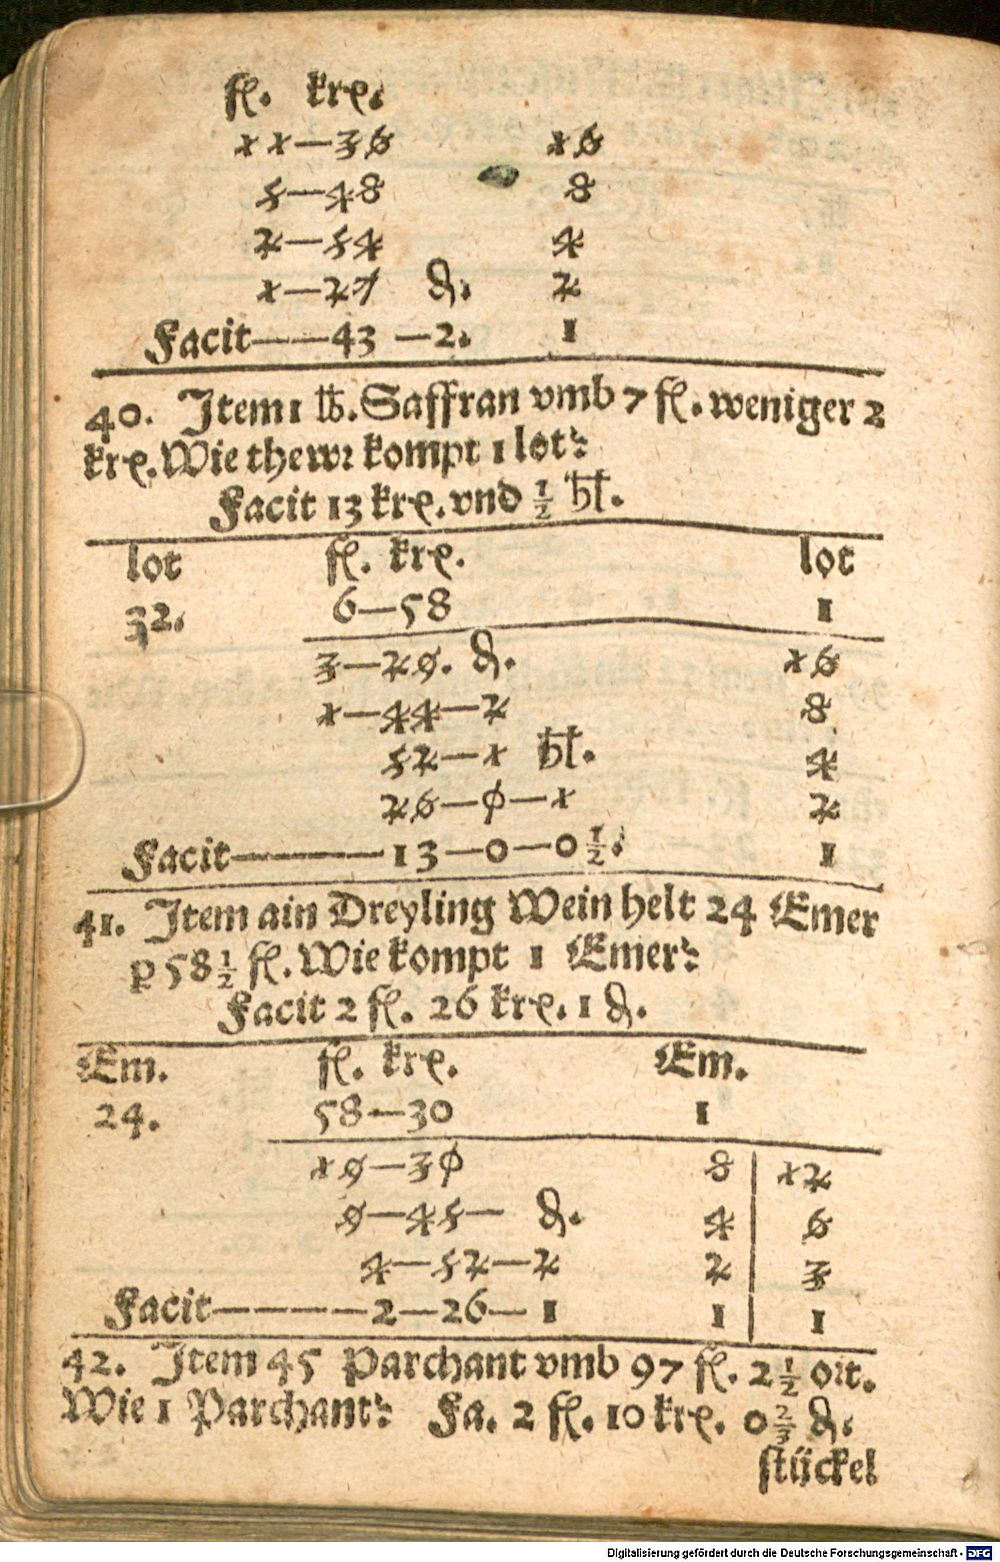 fl. krꝭ.
11—36 16
5—48 8
2—54 4
1—27 ₰. 2
Facit——43 —2. 1
40. Item 1 ℔. Saffran vmb 7 fl. weniger 2
krꝭ. Wie thewr kompt 1 lot?
Facit 13 krꝭ. vnd ½ hl.
lot fl. krꝭ. lot
32. 6—58 1
3—29. ₰. 16
1—44—2 8
52—1 hl. 4
26—0—1 2
Facit————13—0—0½. 1
41. Item ain Dreyling Wein helt 24 Emer
p 58½ fl. Wie kompt 1 Emer?
Facit 2 fl. 26 krꝭ. 1 ₰.
Em. fl. krꝭ. Em.
24. 58—30 1
19—30 8 | 12
9—45— ₰. 4 | 6
4—52—2 2 | 3
Facit————2—26—1 1 | 1
42. Item 45 Parchant vmb 97 fl. 2½ ort.
Wie 1 Parchant? Fa. 2 fl. 10 krꝭ. 0⅔ ₰.
stückel
Digitalisierung gefördert durch die Deutsche Forschungsgemeinschaft - DFG